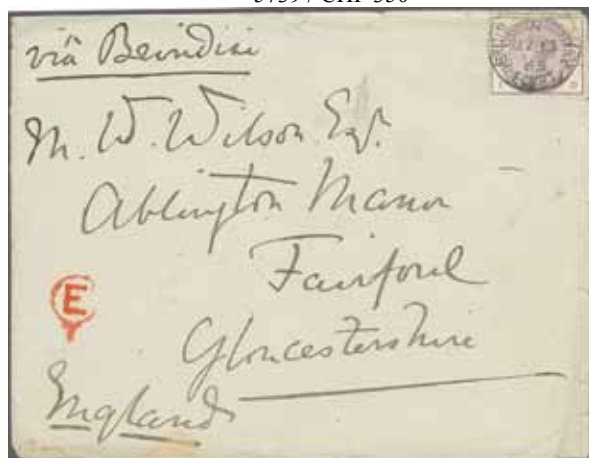 via Brindisi
M. W. Wilson Esqr.
Ablington Manor
Fairford
Gloucestershire
E
England